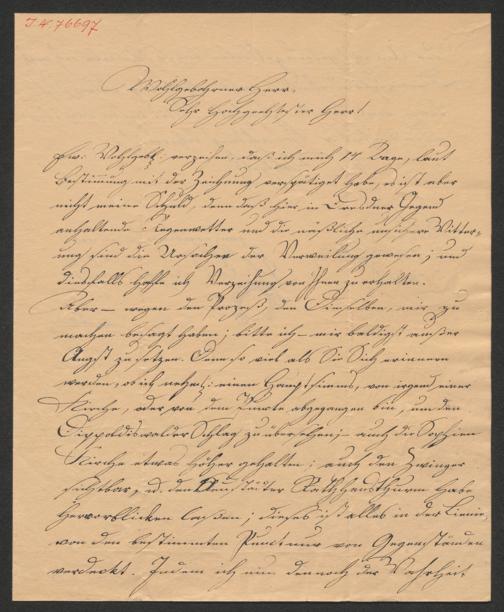 I.N. 76697
Wohlgebohrner Herr.
Sehr Hochgeehrtester Herr!
Ew: Wohlgeb: verzeihen, daß ich mich 14 Tage, laut
Bestimmung mit der Zeichnung verspätiget habe, es ist aber
nicht meine Schuld, denn daß hier in Dresdner Gegend
anhaltende Regenwetter und die näßliche unsichere Witter-
ung sind die Ursachen der Verweilung gewesen; und
diesfalls hoffe ich Verzeihung von Ihnen zu erhalten.
Aber — wegen den Prozeß, den Dieselben, mir, zu
machen besagt haben; bitte ich — mir baldigst außer
Angst zu setzen. Denn so viel als Sie Sich erinnern
werden, ob ich einen Hauptsims, von irgend einer
Kirche, oder von dem Punkte abgegangen bin, um den
Dippoldiswalder Schlag zu übersehen; — auch die Sophien
Kirche etwas höher gehalten; auch den Zwinger
sichtbar, u. den Neustädter Rathhausthurm habe
hervorblicken laßen; dieses ist alles in der Linie,
von den bestimmten Punct nur von Gegenständen
verdeckt. Indem ich nun dennoch der Wahrheit